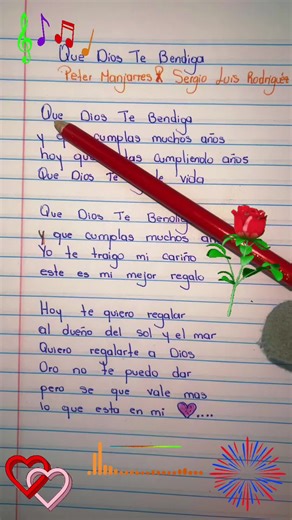 Que Dios Te Bendiga
Peter Manjarres & Sergio Luis Rodríguez
Que Dios Te Bendiga
y que cumplas muchos años
hoy que cumpliendo años
Que Dios Te de vida
Que Dios Te Bendiga
y que cumplas muchos
Yo te traigo mi cariño
este es mi mejor regalo
Hoy te quiero regalar
al dueño del sol y el mar
Quiero regalarte a Dios
Oro no te puedo dar
pero se que vale mas
lo que esta en mi 💜....